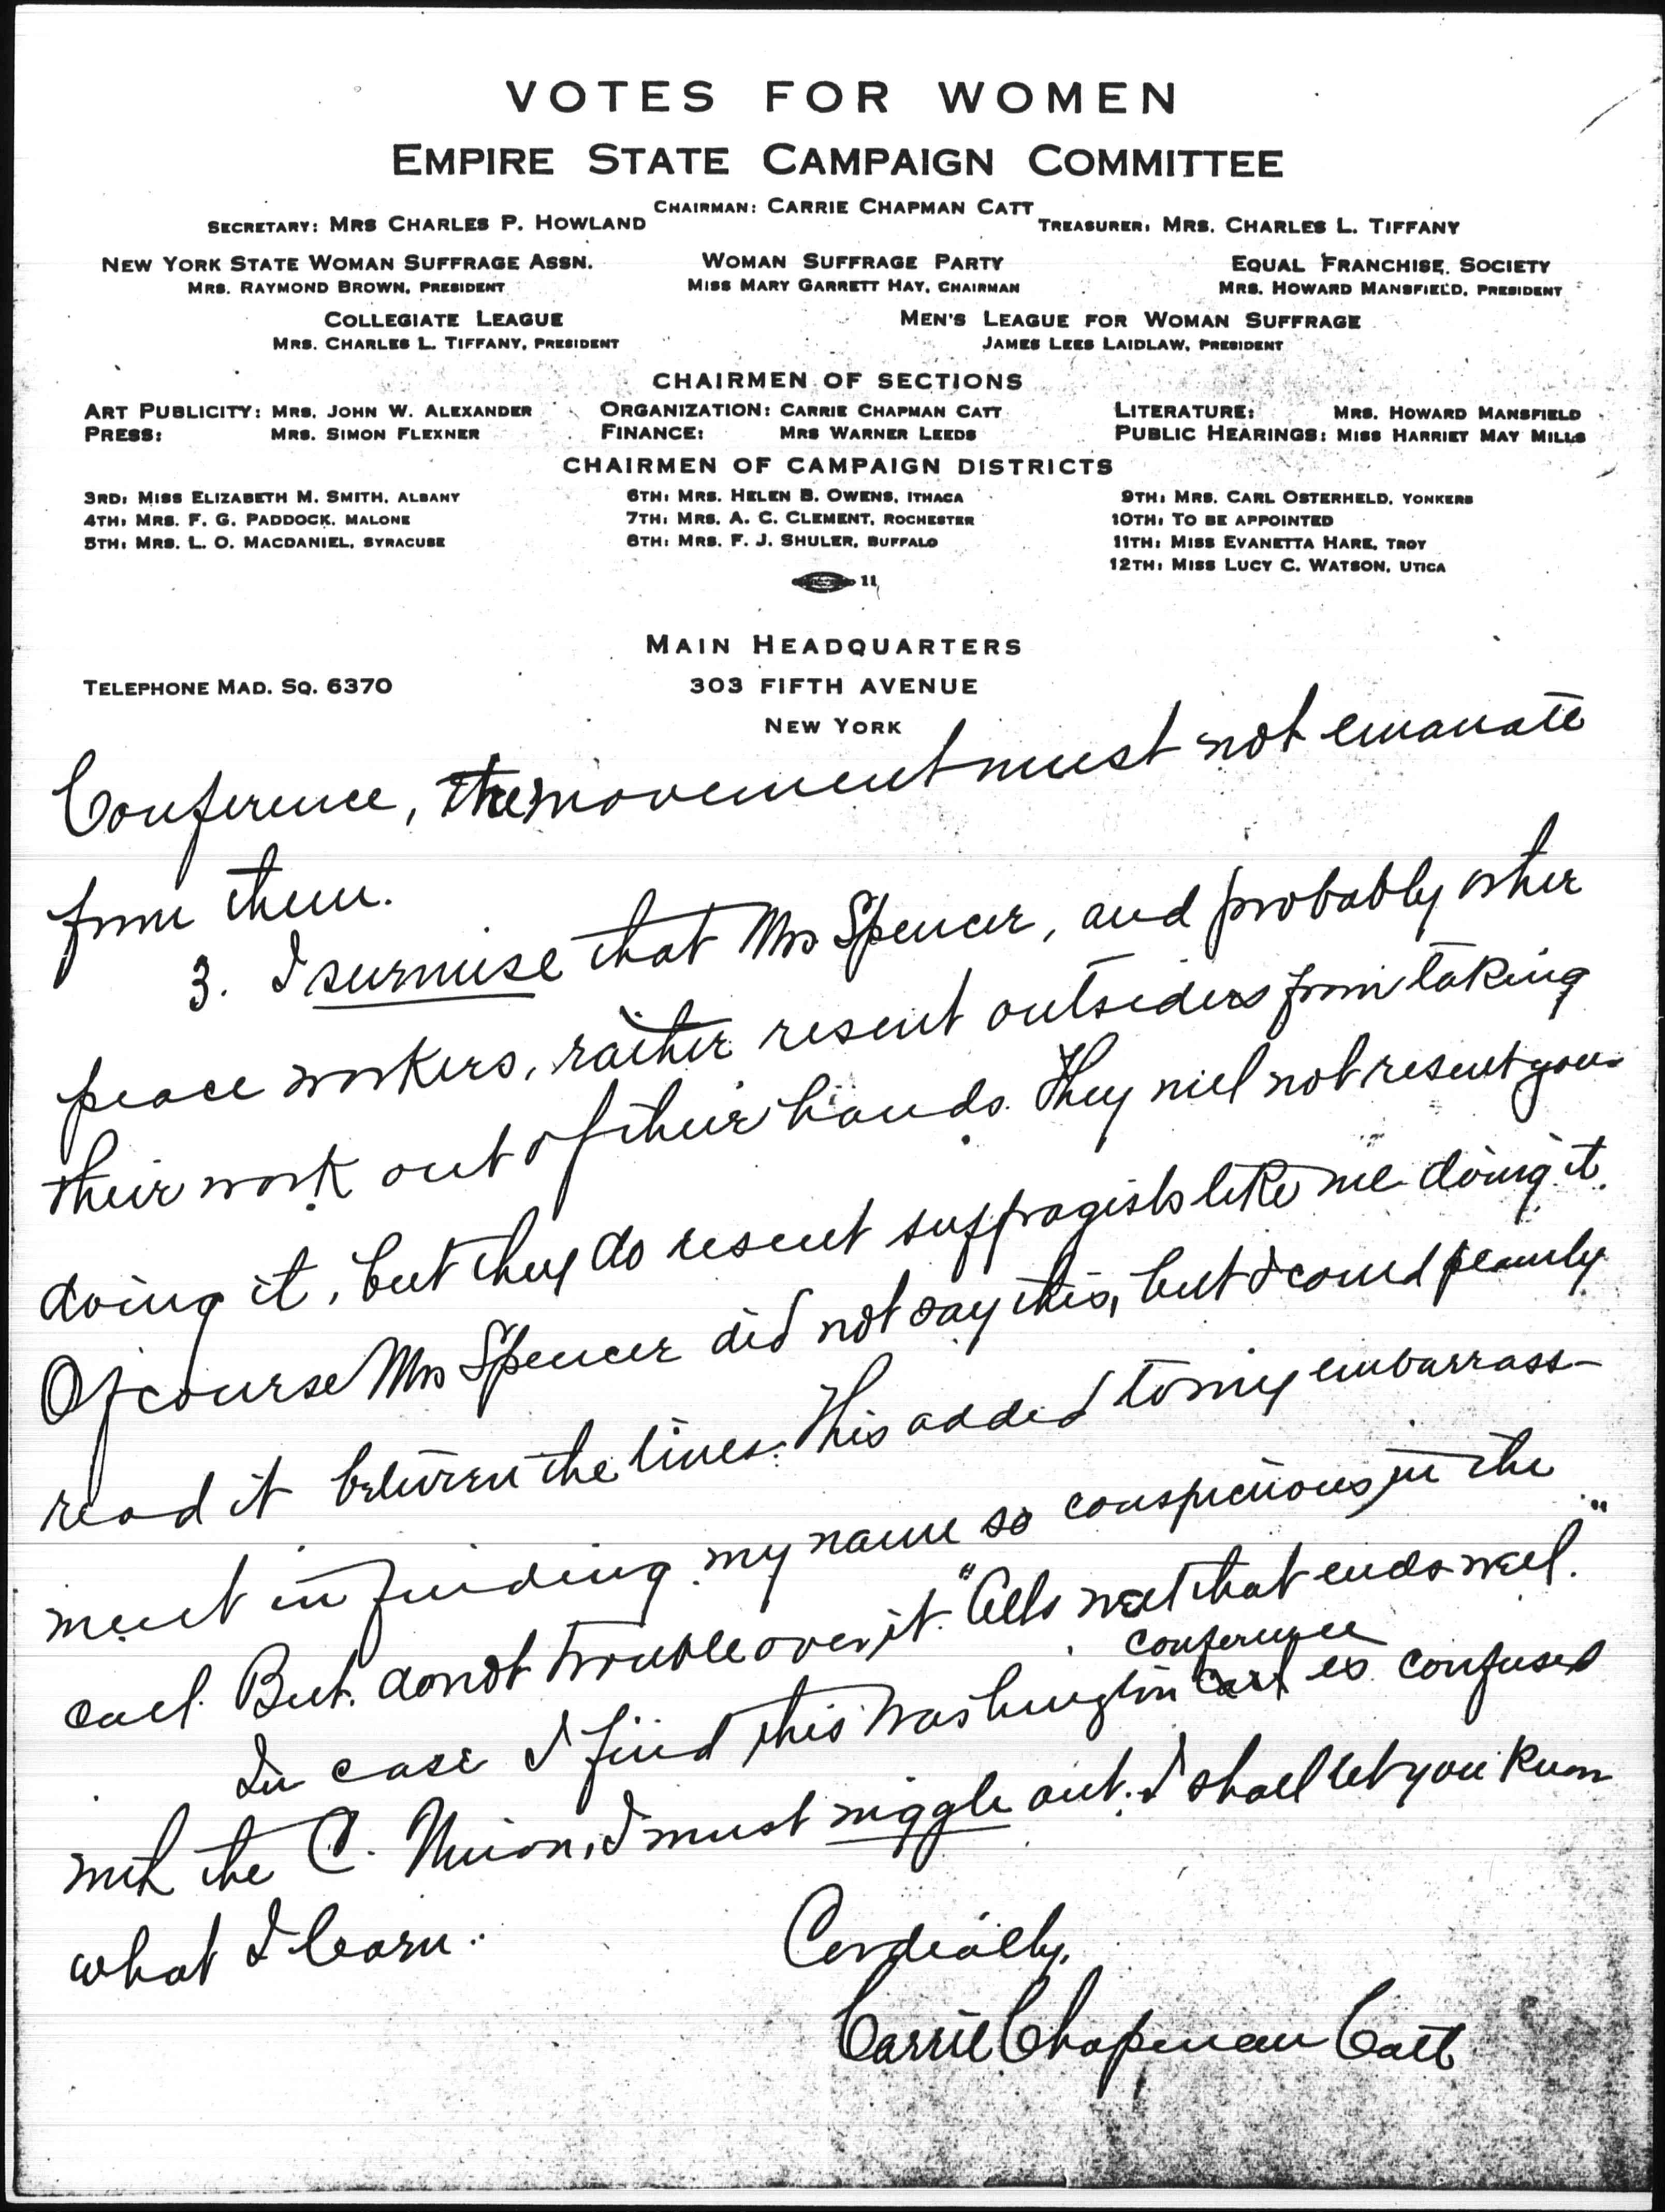 VOTES FOR WOMEN
EMPIRE STATE CAMPAIGN COMMITTEE
CHAIRMAN: CARRIE CHAPMAN CATT
SECRETARY: MRS CHARLES P. HOWLAND
TREASURER: MRS. CHARLES L. TIFFANY
NEW YORK STATE WOMAN SUFFRAGE ASSN.
MRS. RAYMOND BROWN, PRESIDENT
WOMAN SUFFRAGE PARTY
MISS MARY GARRETT HAY, CHAIRMAN
EQUAL FRANCHISE SOCIETY
MRS. HOWARD MANSFIELD, PRESIDENT
COLLEGIATE LEAGUE
MRS. CHARLES L. TIFFANY, PRESIDENT
MEN'S LEAGUE FOR WOMAN SUFFRAGE
JAMES LEES LAIDLAW, PRESIDENT
CHAIRMEN OF SECTIONS
ART PUBLICITY: MRS. JOHN W. ALEXANDER
PRESS: MRS. SIMON FLEXNER
ORGANIZATION: CARRIE CHAPMAN CATT
FINANCE: MRS WARNER LEEDS
LITERATURE: MRS. HOWARD MANSFIELD
PUBLIC HEARINGS: MISS HARRIET MAY MILLS
CHAIRMEN OF CAMPAIGN DISTRICTS
3RD: MISS ELIZABETH M. SMITH, ALBANY
4TH: MRS. F. G. PADDOCK, MALONE
5TH: MRS. L. O. MACDANIEL, SYRACUSE
6TH: MRS. HELEN B. OWENS, ITHACA
7TH: MRS. A. C. CLEMENT, ROCHESTER
8TH: MRS. F. J. SHULER, BUFFALO
9TH: MRS. CARL OSTERHELD, YONKERS
10TH: TO BE APPOINTED
11TH: MISS EVANETTA HARE, TROY
12TH: MISS LUCY C. WATSON, UTICA
11
MAIN HEADQUARTERS
TELEPHONE MAD. SQ. 6370
303 FIFTH AVENUE
NEW YORK
Conference, the movement must not emanate
from them.
3. I surmise that Mrs Spencer, and probably other
peace workers, rather resent outsiders from taking
their work out of their hands. They will not resent your
doing it, but they do resent suffragists like me doing it.
Of course Mrs Spencer did not say this, but I could plainly
read it between the lines. This added to my embarrass-
ment in finding my name so conspicuous in the
call. But do not trouble over it. "Alls well that ends well."
conference
In case I find this Washington call is confused
with the C. Union, I must niggle out. I shall let you know
what I learn.
Cordially,
Carrie Chapman Catt